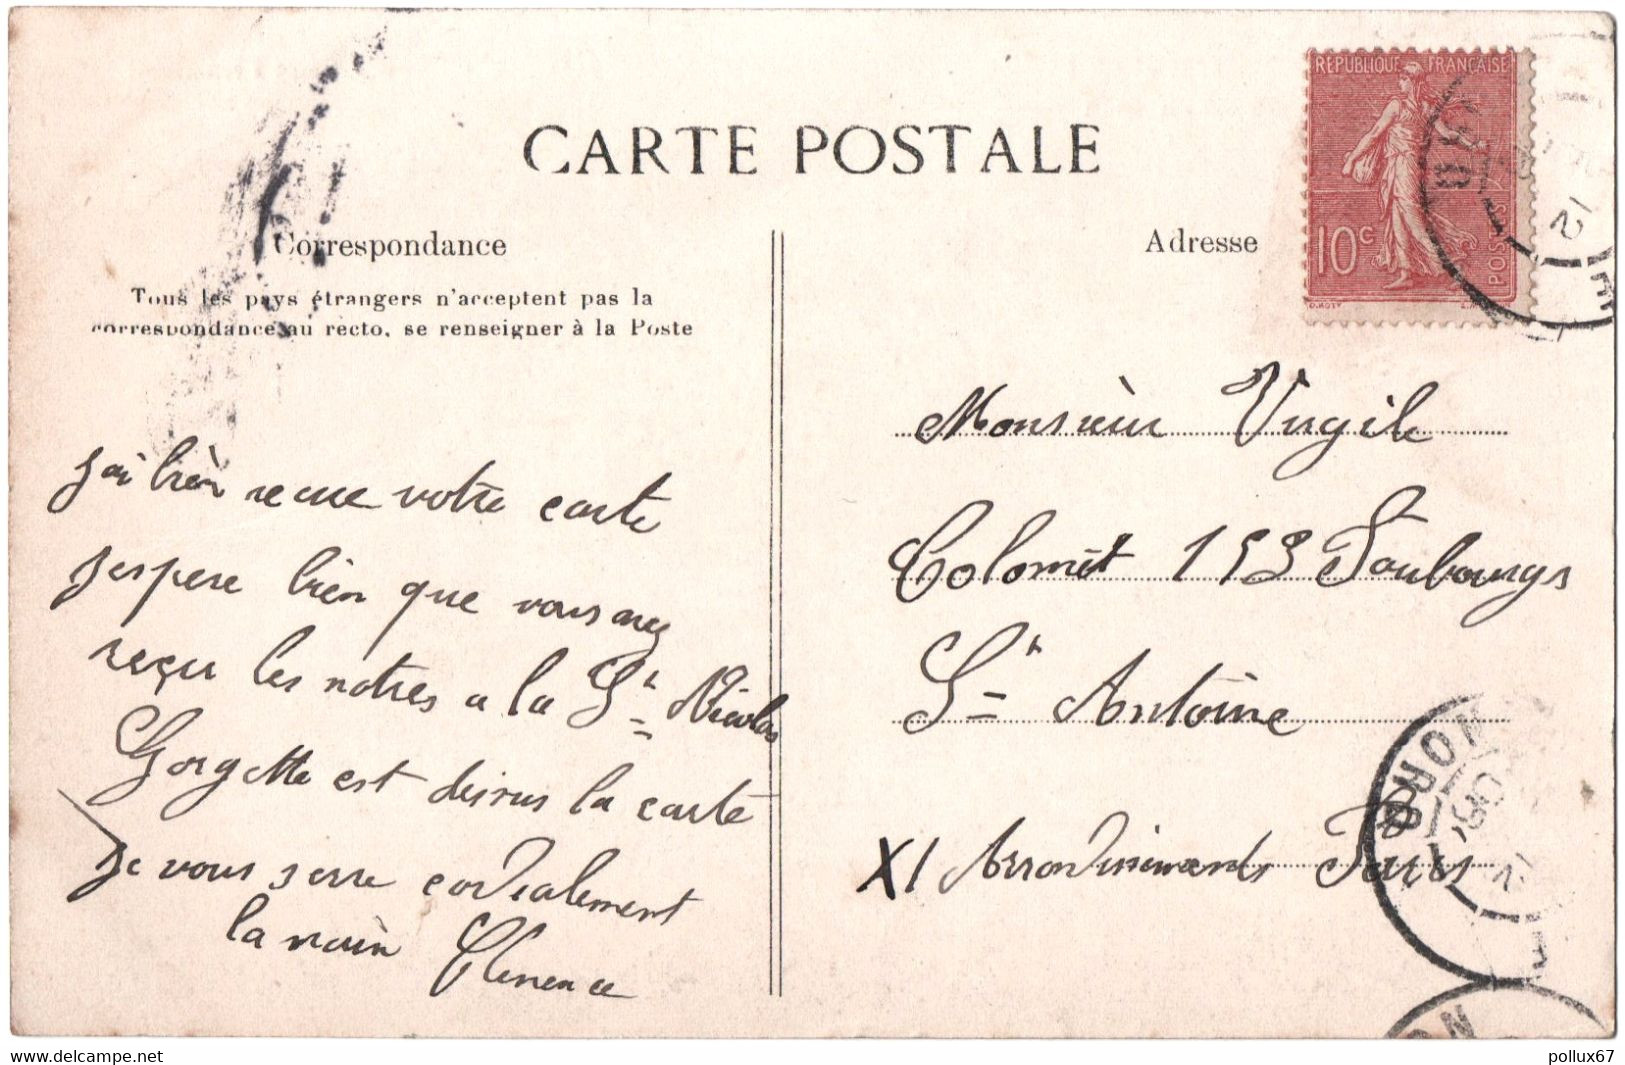 CARTE POSTALE
Correspondance
Tous les pays étrangers n'acceptent pas la
correspondance au recto, se renseigner à la Poste
j'ai bièn recue votre carte
jespere bien que vous avez
reçu les notres a la St Nicolas
Gorgette est desrus la carte
Je vous serre cordialement
la main Clemence
Adresse
RÉPUBLIQUE FRANÇAISE
10c
POSTES
Monsieur Virgile
Colomèt 153 Foubourgs
St Antoine
XI Arrondissiments Paris
delcampe.net
pollux67